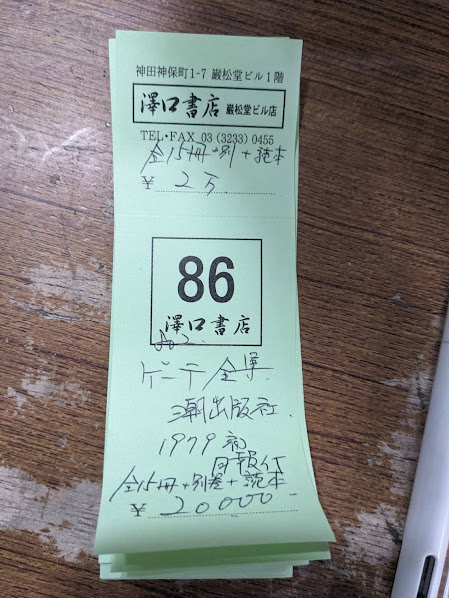 神田神保町1-7 巌松堂ビル1階
澤口書店 巌松堂ビル店
TEL・FAX 03(3233)0455
全15冊+別+読本
¥ 2万
86
澤口書店
ゲーテ全集
潮出版社
1979 初
月報付
全15冊+別巻+読本
¥ 20000-